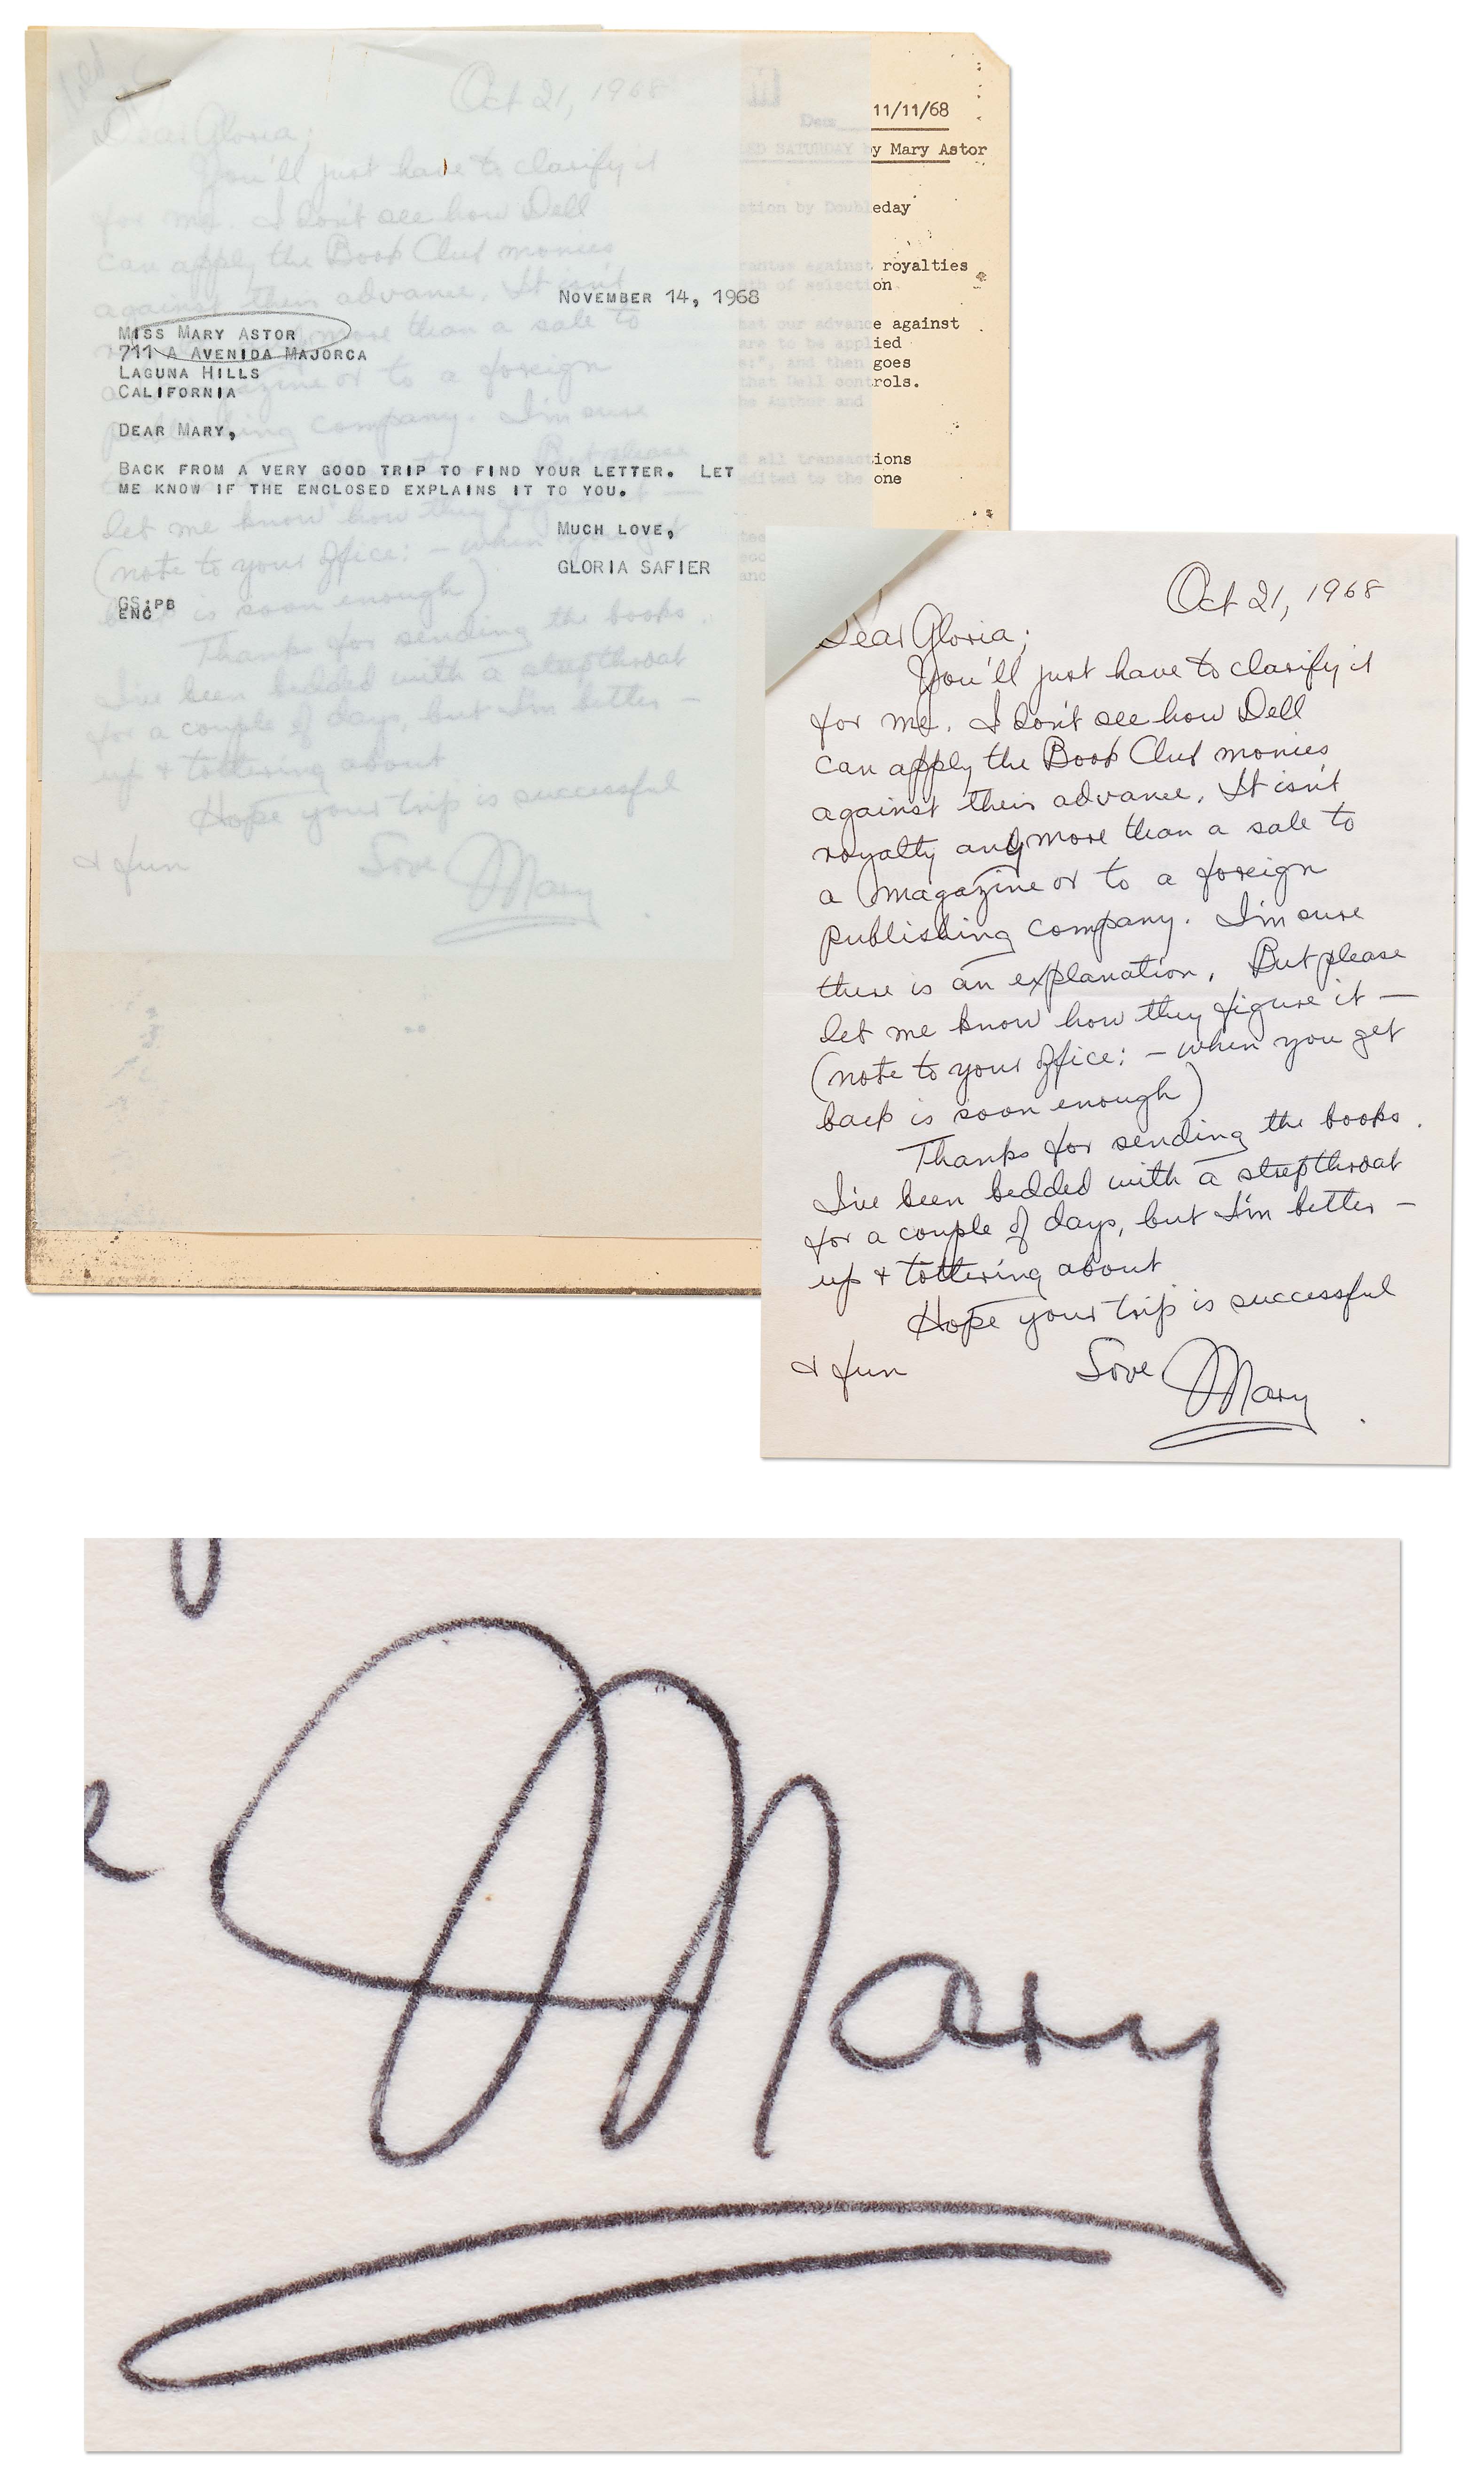 11/11/68
ED SATURDAY by Mary Astor
ction by Doubleday
rantee against royalties
of selection
at our advance against
are to be applied
", and then goes
that Dell controls.
the Author and
all transactions
edited to the one
November 14, 1968
Miss Mary Astor
711 A Avenida Majorca
Laguna Hills
California
Dear Mary,
Back from a very good trip to find your letter. Let
me know if the enclosed explains it to you.
Much love,
Gloria Safier
GS:PB
ENC
Oct 21, 1968
Dear Gloria;
You'll just have to clarify it
for me. I don't see how Dell
can apply the Book Club monies
against their advance. It isn't
royalty anymore than a sale to
a magazine or to a foreign
publishing company. I'm sure
there is an explanation. But please
let me know how they figure it —
(note to your office: – when you get
back is soon enough)
Thanks for sending the books.
I've been bedded with a strepthroat
for a couple of days, but I'm better –
up + tottering about
Hope your trip is successful
+ fun
Love Mary
Mary